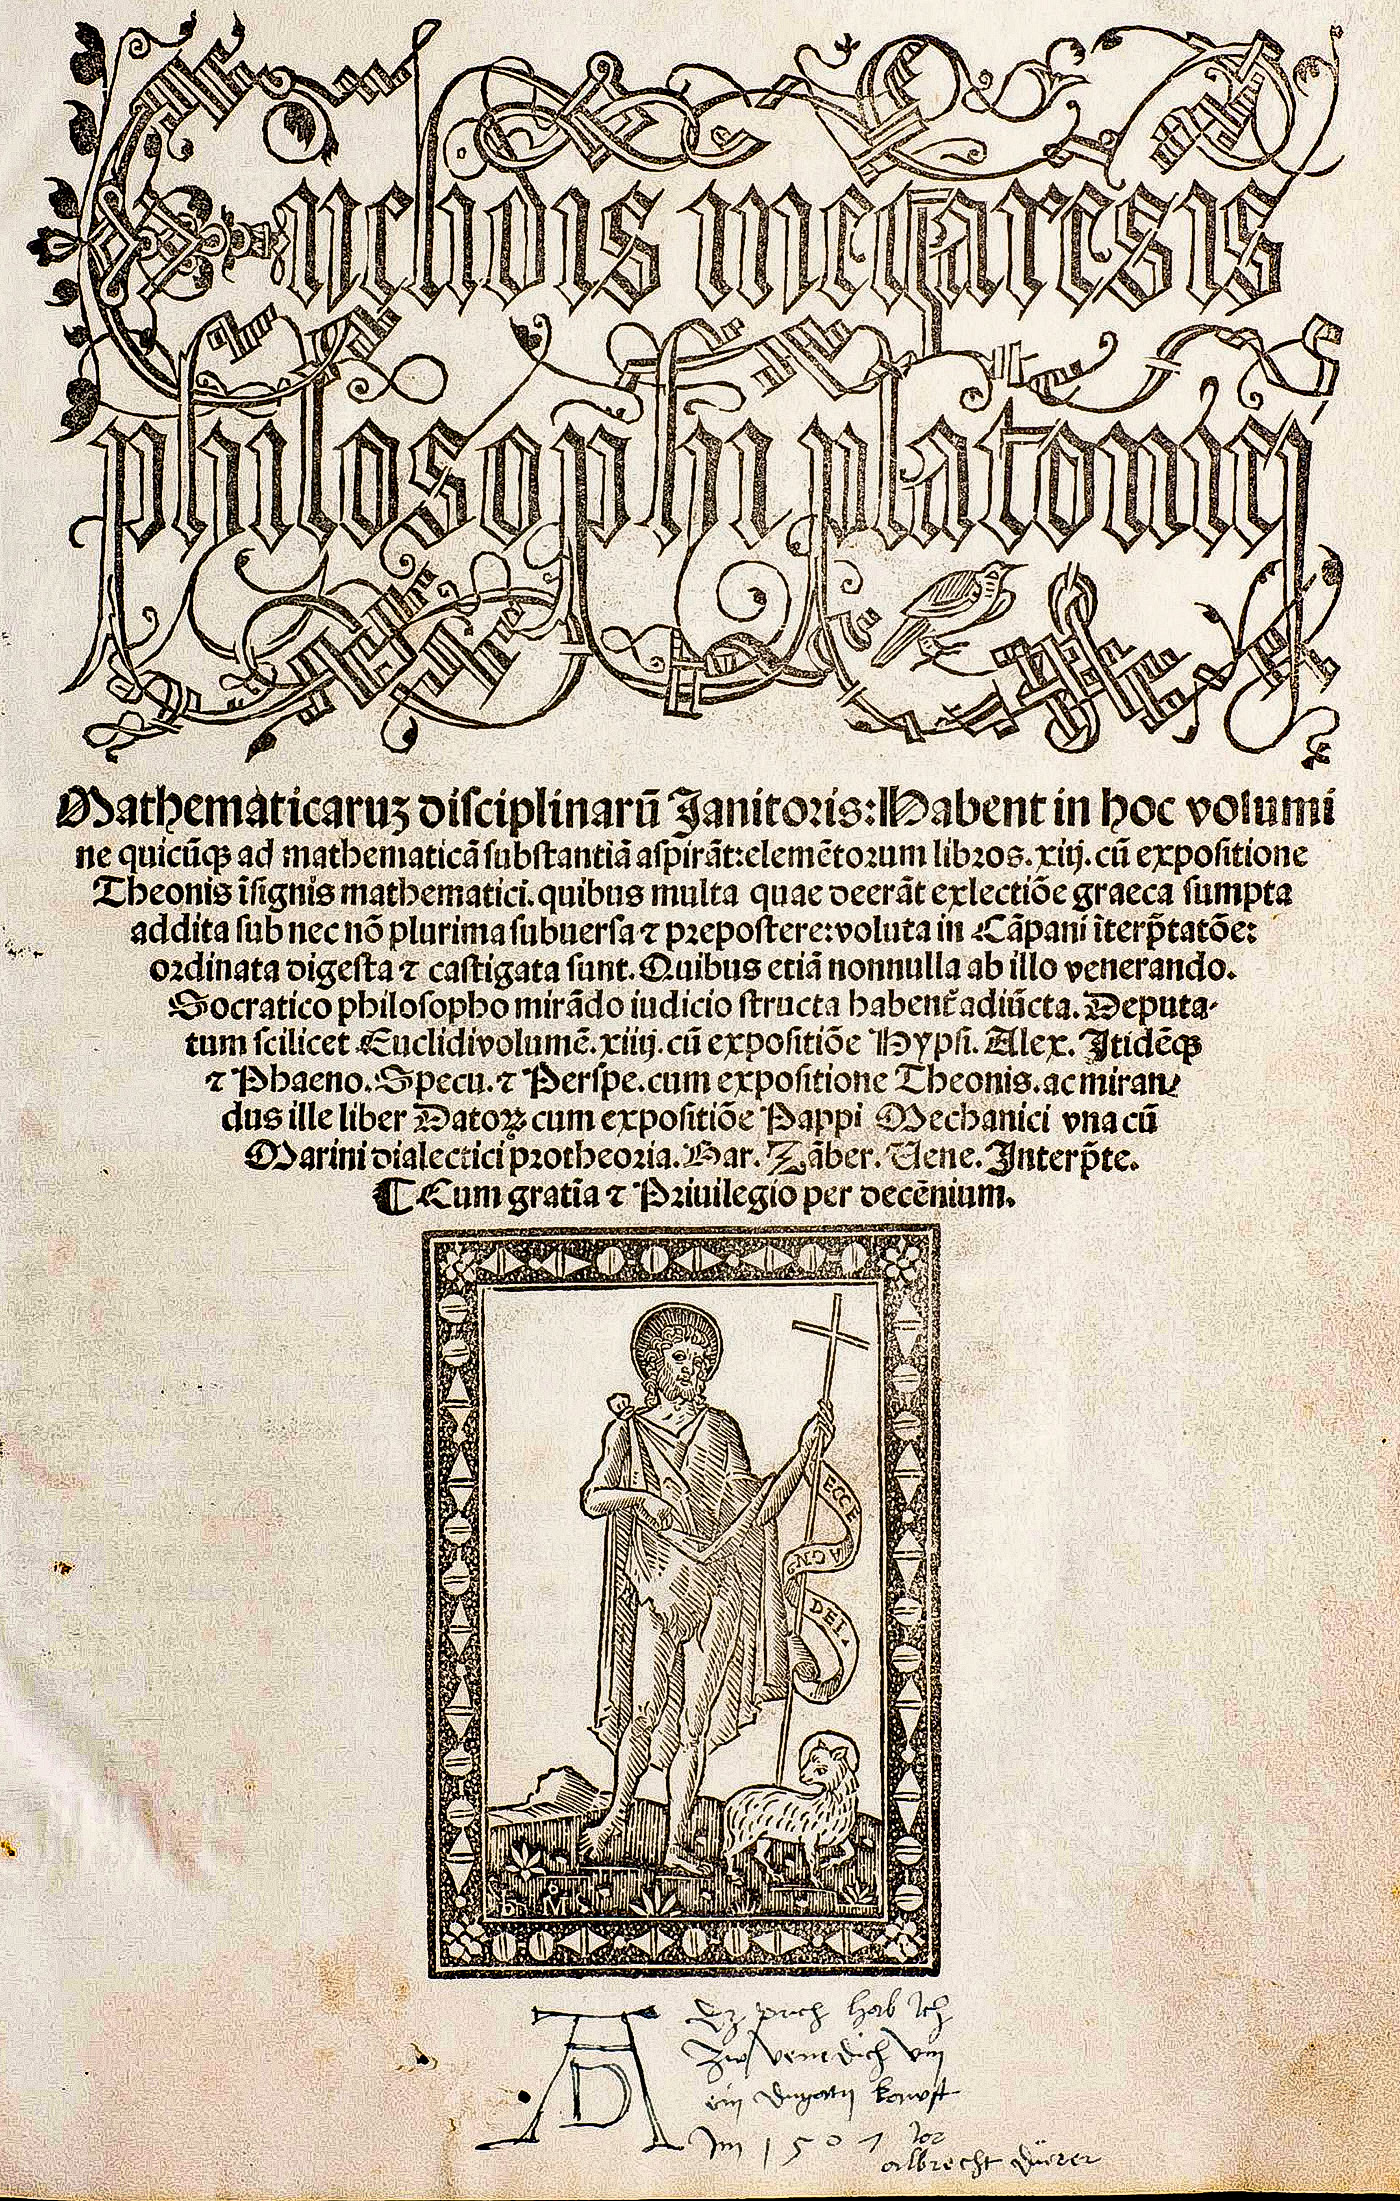 Euclidis megaresis
philosophi platonicj
Mathematicaruʒ disciplinarū Janitoris: Habent in hoc volumi
ne quicūqꝫ ad mathematicā substantiā aspirāt: elemētorum libros .xiij. cū expositione
Theonis īsignis mathematici. quibus multa quae deerāt ex lectiōe graeca sumpta
addita sub nec nō plurima subuersa ⁊ prepostere: voluta in Cāpani īterp̄tatōe:
ordinata digesta ⁊ castigata sunt. Quibus etiā nonnulla ab illo venerando.
Socratico philosopho mirādo iudicio structa habent᷑ adiūcta. Deputa-
tum scilicet Euclidi volumē .xiiij. cū expositiōe Hypsi. Alex. Jtidēqꝫ
⁊ Phaeno. Specu. ⁊ Perspe. cum expositione Theonis. ac miran-
dus ille liber Datoꝝ cum expositiōe Pappi Mechanici vna cū
Marini dialectici protheoria. Bar. Zāber. Vene. Interp̄te.
¶ Cum gratia ⁊ Priuilegio per decēnium.
ECCE
AGN
DEI.
b M
AD
Dz puch hab ich
zw venedich vm
ein Dugatn kawft
Im 1507 Jor
albrecht dürer